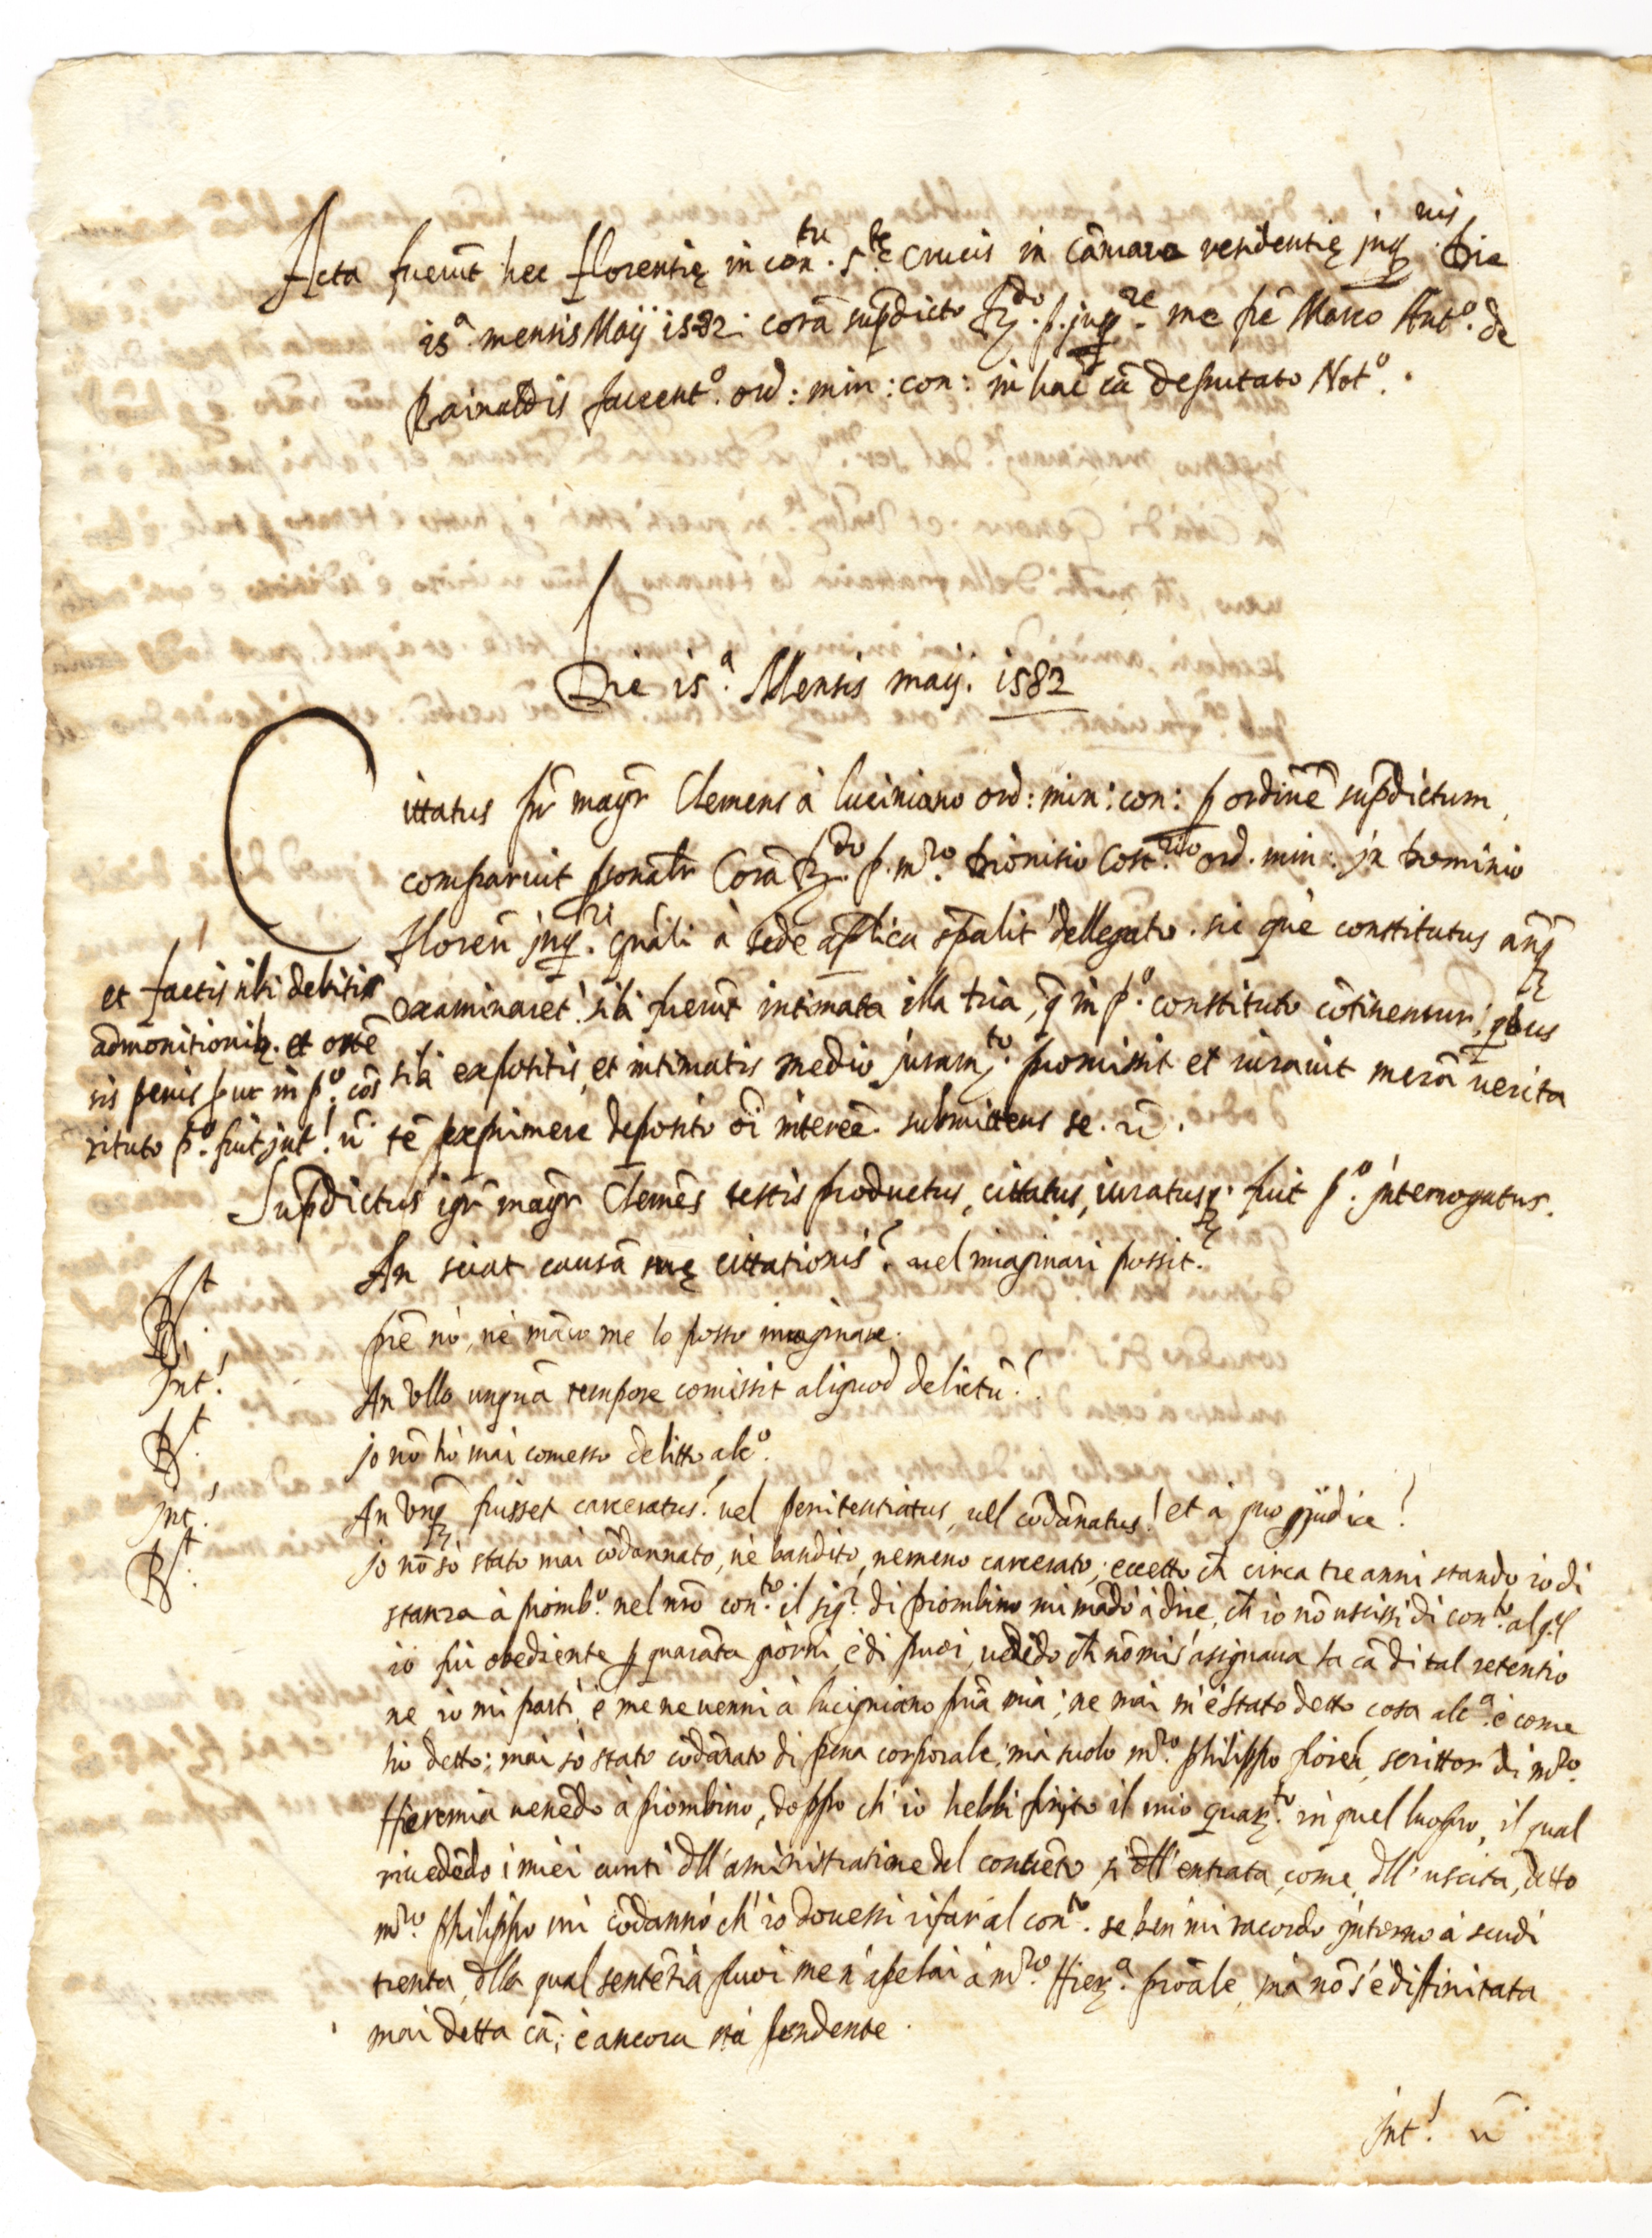 Acta fuerūt hec florentię in con.tu S.tę Crucis in Cāmara residentię jnq.nis Die
15.a mensis Maij 1582. corā sup̄dicto R.do p. jnq.re me fr̄e Marco Ant.o de
Rainaldis ord: min: con: in hac cā deputato Not.o.
Die 15.a Mensis maij. 1582
Cittatus fr̄ magr̄ Clemens à luciniano ord: min: con: p ordinē sup̄dictum,
comparuit p̄sonalr̄ Corā R.do p. m.ro Dionisio ord. min: jn Dominio
floreñ jnq.ri gn̄ali à sede ap̄lica sp̄alit' dellegato. sic què constitutus anq̄
examinaret! sibi fuerūt intimata illa tria, q̄ in p.o constituto cōtinentur, qbus
sibi expositis, et intimatis medio juram.to promissit et iurauit merā uerita
tē exprimere deposito ōi interēē. submittens se. ū.
et factis sibi debitis
admonitionib. et
sis penis put in p.o cōs
tituto p.o fuit jnt! ū
Sup̄dictus igr̄ magr̄ Clemēs testis productus, cittatus, iuratusq. fuit p.o jnterrogatus.
An sciat causā suę cittationis? uel imaginari possit?
R.t pr̄e nò, nè māco me lo posso imaginare.
Jnt! An Vllo unquā tempore comissit aliquod delictū?
R.t jo nō hò mai comesso delitto alc.o.
jnt! An Vnq̄ fuisset carceratus! uel penitentiatus, uel cōdānatus! et à quo judice!
R.t jo nō sò stato mai cōdannato, nè bandito, nemeno carcerato, eccetto ch circa tre anni stando io di
stanza à piomb.o nel nrō con.to il sig.r di piombino mi mādò à dire, ch io nō uscissi di con.to al ql
io fui obediente p quarāta giorni, è di puoi, uedēdo ch nō mi s'asignaua la cā di tal retentio
ne io mi parti, è me ne uenni à lucignano pr̄ia mia; ne mai m'è stato detto cosa alc.a è come
hò detto; mai sò stato cōdānato di pena corporale, mà suolo m.ro philippo floreñ, scrittor di m.ro
Hieremia uenēdo à piombino, doppo ch' io hebbi finito il mio quar.to in quel luogho, il qual
riuedēdo i miei cunti dll'aministratione del conuēto si dll'entrata, come, dll'uscita, detto
m.ro philippo mi cōdannò ch' io douessi rifar al con.to. se ben mi racordo jntorno à scudi
trenta, dlla qual sentētia puoi me n'apelai à m.ro Hier.a proāle, mà nō s'è diffinitata
mai detta cā; è ancora stà pendente.
jnt! ū